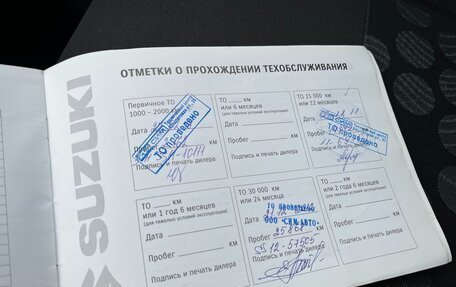 SUZUKI
ОТМЕТКИ О ПРОХОЖДЕНИИ ТЕХОБСЛУЖИВАНИЯ
Первичное ТО
1000 - 2000
Дата
ТО проведено
Подпись и печать дилера
ТО ____ км
или 6 месяцев
(для тяжелых условий эксплуатации)
Дата
Пробег ____ км
Подпись и печать дилера
ТО 15 000 км
или 12 месяцев
Дата
ТО проведено
Пробег
Подпись и печать дилера
ТО ____ км
или 1 год 6 месяцев
(для тяжелых условий эксплуатации)
Дата
Пробег ____ км
Подпись и печать дилера
ТО 30 000 км
или 24 месяца
Дата
ООО "СИМ-АВТО"
Пробег 25868 км
Подпись и печать дилера
ТО ____ км
или 2 года 6 месяцев
(для тяжелых условий эксплуатации)
Дата
Пробег ____ км
Подпись и печать дилера